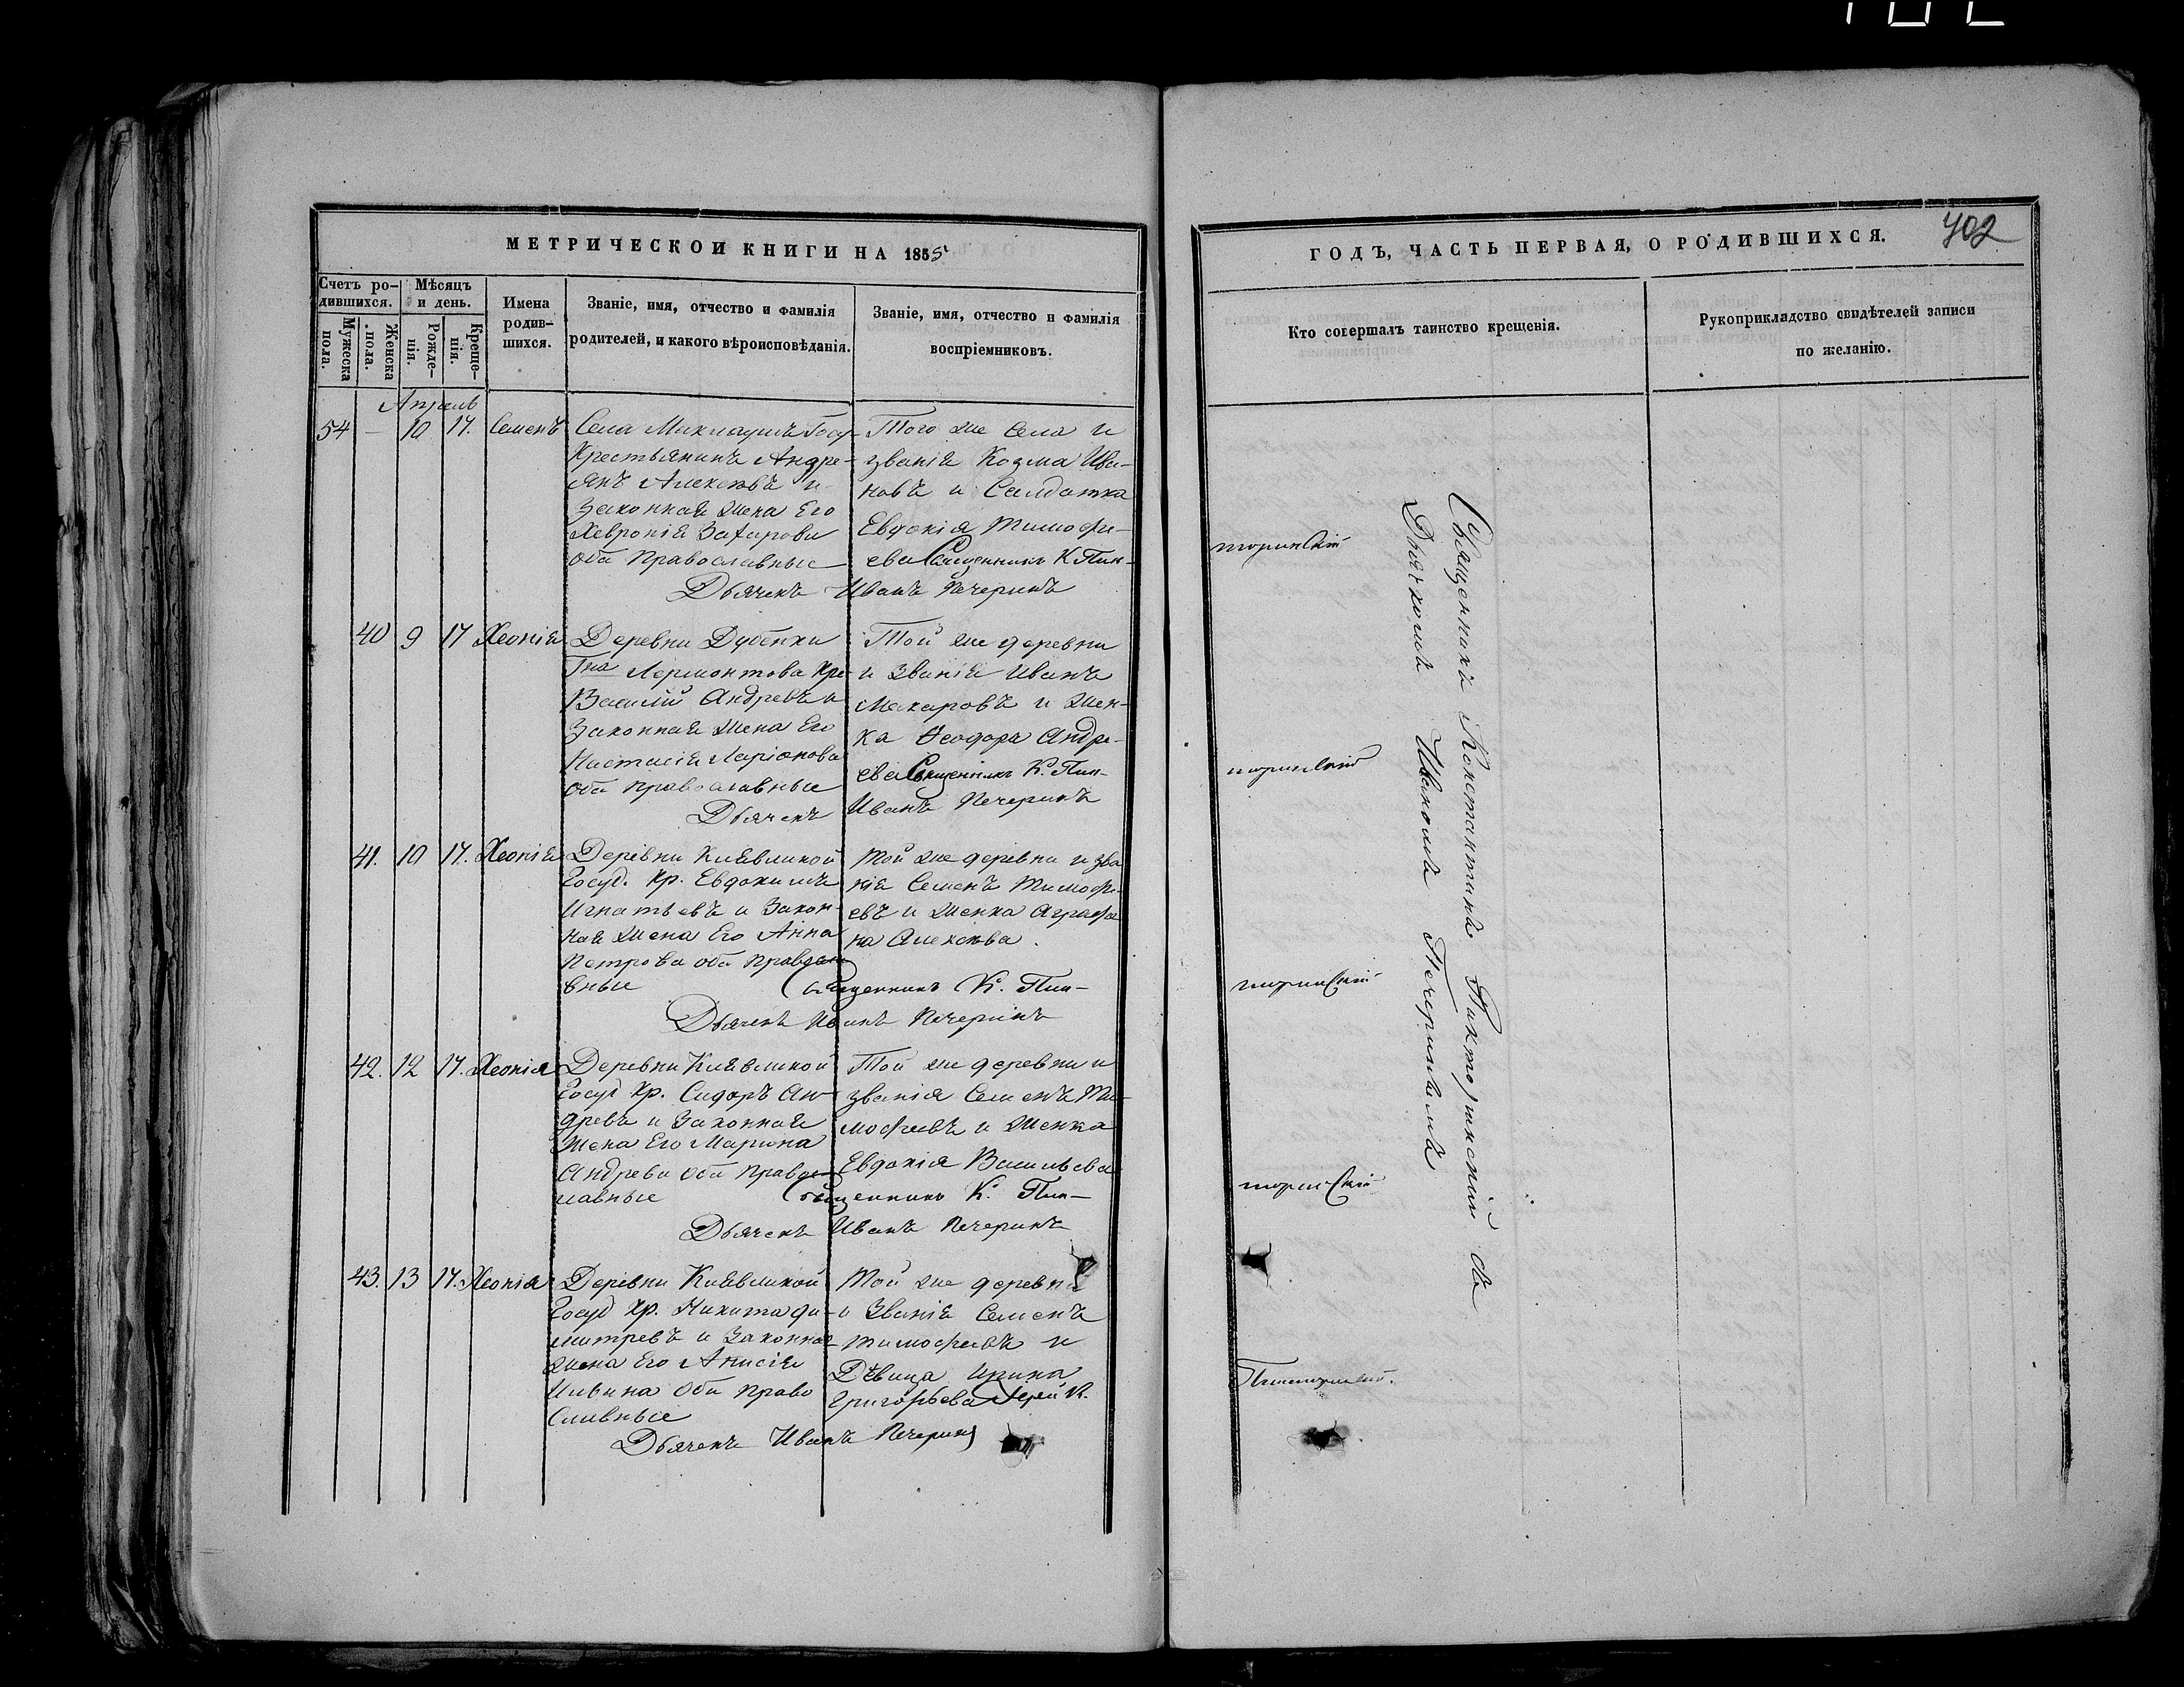 МЕТРИЧЕСКОЙ КНИГИ НА 1855
Счетъ ро-
дившихся.
Мужеска
пола.
Женска
пола.
Мѣсяцъ
и день.
Рожде-
нія.
Креще-
нія.
Имена
родив-
шихся.
Званіе, имя, отчество и фамилія
родителей, и какого вѣроисповѣданія.
Званіе, имя, отчество и фамилія
воспріемниковъ.
Апрель
54 — 10 17. Семенъ
Села Госу-
Крестьянинъ Андре-
янъ Алексѣвъ и
Законная жена Его
Хевронія Захарова
оба Православные
Того же Села и
званія Козма Ива-
новъ и Салдатка
Евдокія Тимофе-
ева Священникъ К. Пик-
Дьячекъ Иванъ Печеринъ
40 9 17 Хеонія
Деревни Дубенки
Гна Лермонтова Кре
Василій Андревъ и
Законная жена Его
Настасія Ларіонова
оба православные
Той же деревни
и званія Иванъ
Макаровъ и Жен-
ка Ѳеодора Андре-
ева Священникъ К. Пик-
Дьячекъ Иванъ Печеринъ
41. 10 17. Хеонія
Деревни
Госуд. Кр. Евдокимъ
Игнатьевъ и Закон-
ная жена Его Анна
Петрова оба Правосла
вные
Той же деревни и зва
нія Семенъ Тимофе-
евъ и женка Аграфе
на Алексѣва.
Священникъ К. Пик-
Дьячекъ Иванъ Печеринъ
42. 12 17. Хеонія
Деревни
Госуд Кр. Сидоръ Ан-
древъ и Законная
жена Его Марина
Андрева оба Правос-
лавные
Той же деревни и
званія Семенъ Ти-
мофеевъ и Женка
Евдокія Васильева
Священникъ К. Пик-
Дьячекъ Иванъ Печеринъ
43. 13 17. Хеонія
Деревни
Госуд Кр. Никита Ди-
митревъ и Законная
жена Его Анисія
Ильина оба Право
славные
Той же деревни
и Званія Семенъ
Тимофеевъ и
Дѣвица Ирина
Григорьева Іерей К.
Дьячекъ Иванъ Печеринъ
ГОДЪ, ЧАСТЬ ПЕРВАЯ, О РОДИВШИХСЯ.
402
Кто совершалъ таинство крещенія.
Рукоприкладство свидѣтелей записи
по желанію.
торинскій
торинскій
торинскій
торинскій
Священникъ Константинъ Пикторинскій съ
Дьячкомъ Иваномъ Печеринымъ